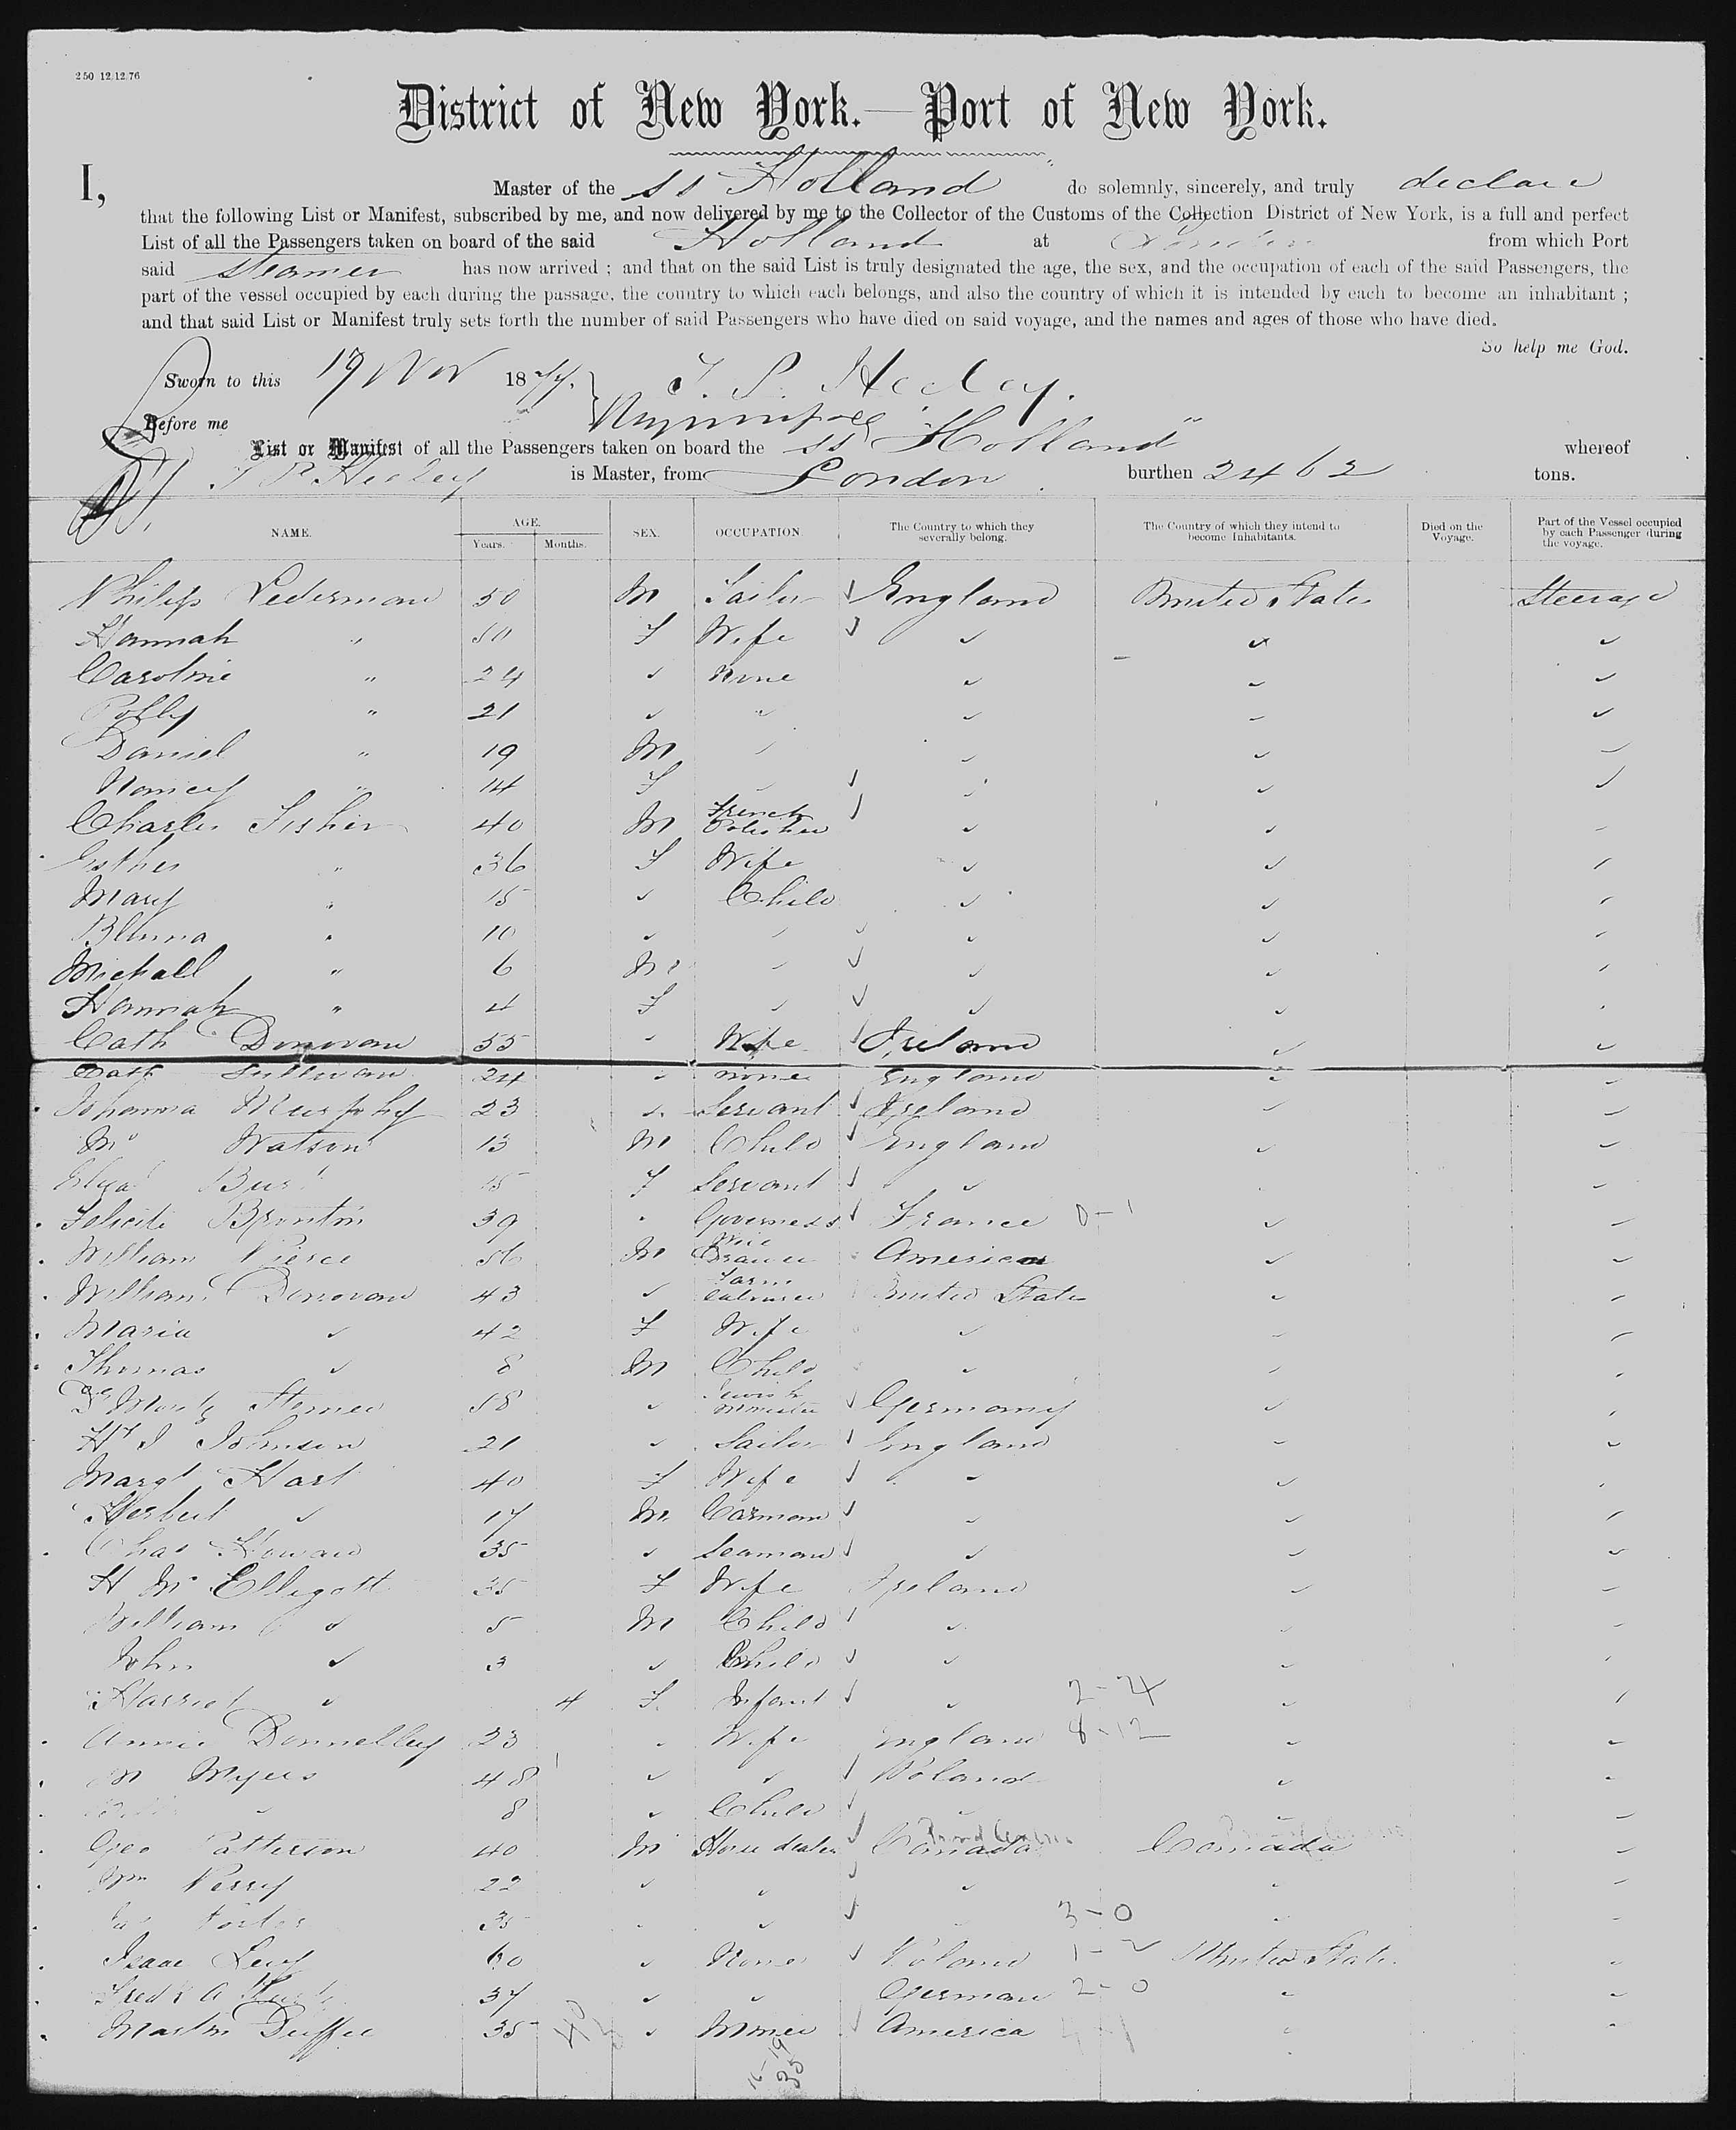 250 12.12.76
District of New York.—Port of New York.
I, Master of the SS Holland do solemnly, sincerely, and truly declare
that the following List or Manifest, subscribed by me, and now delivered by me to the Collector of the Customs of the Collection District of New York, is a full and perfect
List of all the Passengers taken on board of the said Holland at London from which Port
said Steamer has now arrived ; and that on the said List is truly designated the age, the sex, and the occupation of each of the said Passengers, the
part of the vessel occupied by each during the passage, the country to which each belongs, and also the country of which it is intended by each to become an inhabitant ;
and that said List or Manifest truly sets forth the number of said Passengers who have died on said voyage, and the names and ages of those who have died.
So help me God.
Sworn to this 19 Nov 1877.
Before me
List or Manifest of all the Passengers taken on board the SS "Holland" whereof
is Master, from London burthen 2462 tons.
NAME. AGE. SEX. OCCUPATION. The Country to which they severally belong. The Country of which they intend to become Inhabitants. Died on the Voyage. Part of the Vessel occupied by each Passenger during the voyage.
Years. Months.
Philip Lederman 50 M England United States Steerage
Hannah " 50 F Wife
Caroline " 24 None
Polly " 21 "
Daniel " 19 M
Nancy " 14 F
Charles Fisher 40 M French Polisher
Esther " 36 F Wife
Mary " 15 Child
" 10
Michall " 6 M
Hannah " 4 F
Cath Donovan 55 Wife Ireland
Cath Sullivan 24 none England
Johanna Murphy 23 Servant Ireland
Watson 13 M Child England
Eliza 15 F Servant
Felicité 39 Governess France 0-1
William Pierce 56 M Wire Drawer America
William Donovan 43 Farm Labourer United States
Maria 42 F Wife
Thomas 8 M Child
58 Jewish Minister Germany
Hy J Johnson 21 Sailor England
Margt Hart 40 F Wife
Herbert 17 M Carman
Chas Howard 35 Seaman
H Mc Elligott 35 F Wife Ireland
William 5 M Child
John 3 Child
Harriet 4 F Infant 2-24
Annie Donnelley 23 Wife England 8-12
M Myers 48 Poland
8 Child
Geo Patterson 40 M Horse dealer Canada Canada
Wm Perry 22
Jas Porter 35 3-0
Isaac Levy 60 None Poland 1-2 United States
Fredk A 37 German 2-0
Martin Duffee 35 Miner America
16-19
35